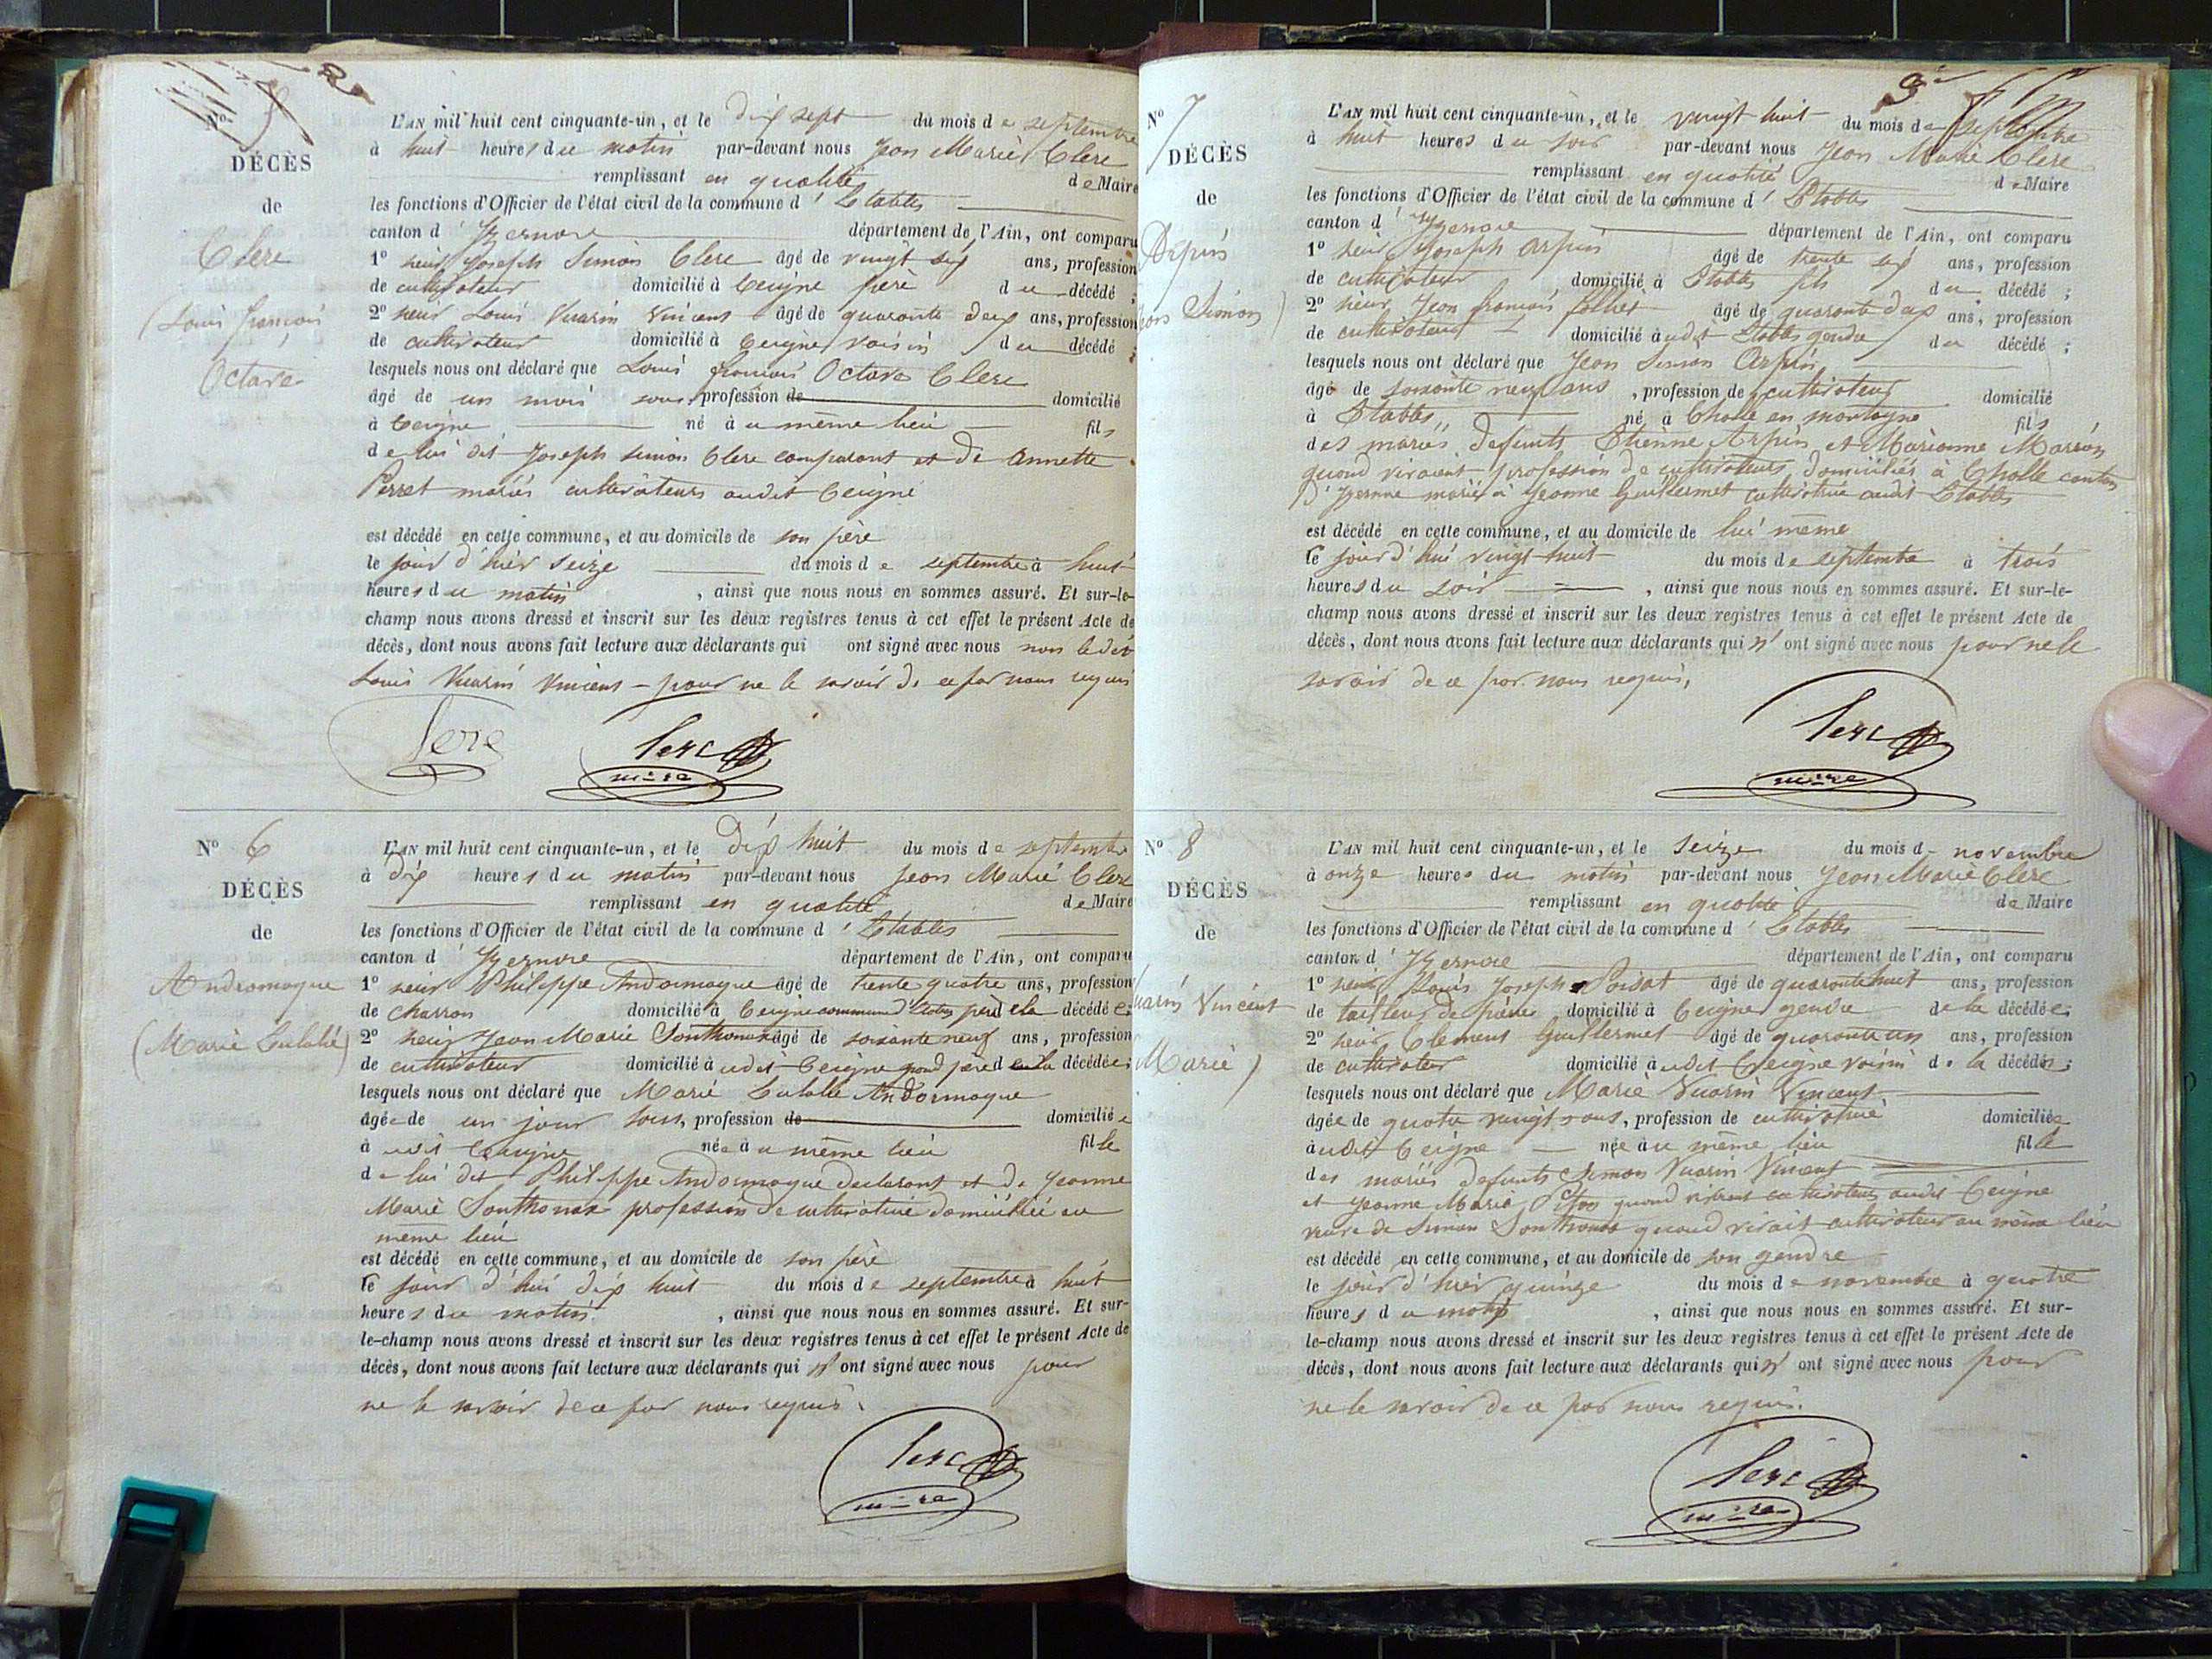 No 5
DÉCÈS
de
Clerc
(Louis françois
Octave
L'AN mil huit cent cinquante-un, et le dix sept du mois de septembre
à huit heures du matin par-devant nous Jean Marie Clerc
remplissant en qualité de Maire
les fonctions d'Officier de l'état civil de la commune d'Etables
canton d'Izernore département de l'Ain, ont comparu
1o sieur Joseph Simon Clerc âgé de vingt six ans, profession
de cultivateur domicilié à Ceigne père du décédé ;
2o sieur Louis Vuarin Vincent âgé de quarante deux ans, profession
de cultivateur domicilié à Ceigne voisin du décédé ;
lesquels nous ont déclaré que Louis françois Octave Clerc
âgé de un mois sans profession de domicilié
à Ceigne né à u même lieu fils
de lui dit Joseph Simon Clerc comparant et de Annette
Perret mariés cultivateurs audit Ceigne
est décédé en cette commune, et au domicile de son père
le jour d'hier seize du mois de septembre à huit
heures du matin , ainsi que nous nous en sommes assuré. Et sur-le-
champ nous avons dressé et inscrit sur les deux registres tenus à cet effet le présent Acte de
décès, dont nous avons fait lecture aux déclarants qui ont signé avec nous non ledit
Louis Vuarin Vincent - pour ne le savoir de ce par nous requis
Clerc Clerc
maire
No 6
DÉCÈS
de
Andromaque
(Marie Eulalie)
L'AN mil huit cent cinquante-un, et le dix huit du mois de septembre
à dix heures du matin par-devant nous Jean Marie Clerc
remplissant en qualité de Maire
les fonctions d'Officier de l'état civil de la commune d'Etables
canton d'Izernore département de l'Ain, ont comparu
1o sieur Philippe Andormaque âgé de trente quatre ans, profession
de charron domicilié à Ceigne commune d'Etables père de la décédée ;
2o sieur Jean Marie Sonthonax âgé de soixante neuf ans, profession
de cultivateur domicilié à udit Ceigne grand père de la décédée ;
lesquels nous ont déclaré que Marie Eulalie Andormaque
âgée de un jour sans profession de domiciliée
à udit Ceigne née à u même lieu fille
de lui dit Philippe Andormaque declarant et de Jeanne
Marie Sonthonax profession de cultivatrice domiciliée au
même lieu
est décédé en cette commune, et au domicile de son père
le jour d'hui dix huit du mois de septembre à huit
heures du matin , ainsi que nous nous en sommes assuré. Et sur-
le-champ nous avons dressé et inscrit sur les deux registres tenus à cet effet le présent Acte de
décès, dont nous avons fait lecture aux déclarants qui n' ont signé avec nous pour
ne le savoir de ce par nous requis.
Clerc
maire
3e
No 7
DÉCÈS
de
Arpin
Simon)
L'AN mil huit cent cinquante-un, et le vingt huit du mois de septembre
à huit heures du soir par-devant nous Jean Marie Clerc
remplissant en qualité de Maire
les fonctions d'Officier de l'état civil de la commune d'Etables
canton d'Izernore département de l'Ain, ont comparu
1o sieur Joseph Arpin âgé de trente six ans, profession
de cultivateur domicilié à Etables fils du décédé ;
2o sieur Jean françois âgé de quarante deux ans, profession
de cultivateur domicilié à udit Etables gendre du décédé ;
lesquels nous ont déclaré que Jean Simon Arpin
âgé de soixante neuf ans , profession de cultivateur domicilié
à Etables né à Cholle en montagne fils
des mariés defunts Etienne Arpin et Marianne
quand vivaient profession de cultivateurs domiciliés à Cholle canton
d'Izernore marié à Jeanne Guillermet cultivatrice audit Etables
est décédé en cette commune, et au domicile de lui même
le jour d'hui vingt huit du mois de septembre à trois
heures du soir , ainsi que nous nous en sommes assuré. Et sur-le-
champ nous avons dressé et inscrit sur les deux registres tenus à cet effet le présent Acte de
décès, dont nous avons fait lecture aux déclarants qui n' ont signé avec nous pour ne le
savoir de ce par nous requis,
Clerc
maire
No 8
DÉCÈS
de
Vincent
Marie)
L'AN mil huit cent cinquante-un, et le seize du mois d novembre
à onze heures du matin par-devant nous Jean Marie Clerc
remplissant en qualité de Maire
les fonctions d'Officier de l'état civil de la commune d'Etables
canton d'Izernore département de l'Ain, ont comparu
1o sieur Louis Joseph Poisat âgé de quarante huit ans, profession
de tailleur de pierre domicilié à Ceigne gendre de la décédée ;
2o sieur Clement Guillermet âgé de quarante un ans, profession
de cultivateur domicilié à udit Ceigne voisin de la décédée ;
lesquels nous ont déclaré que Marie Vuarin Vincent
âgée de quatre vingts ans, profession de cultivatrice domiciliée
à udit Ceigne née à u même lieu fille
des mariés defunts Simon Vuarin Vincent
et Jeanne Marie quand vivaient cultivateurs audit Ceigne
veuve de Simon Sonthonax quand vivait cultivateur au même lieu
est décédé en cette commune, et au domicile de son gendre
le jour d'hier quinze du mois de novembre à quatre
heures du matin , ainsi que nous nous en sommes assuré. Et sur-
le-champ nous avons dressé et inscrit sur les deux registres tenus à cet effet le présent Acte de
décès, dont nous avons fait lecture aux déclarants qui n' ont signé avec nous pour
ne le savoir de ce par nous requis.
Clerc
maire